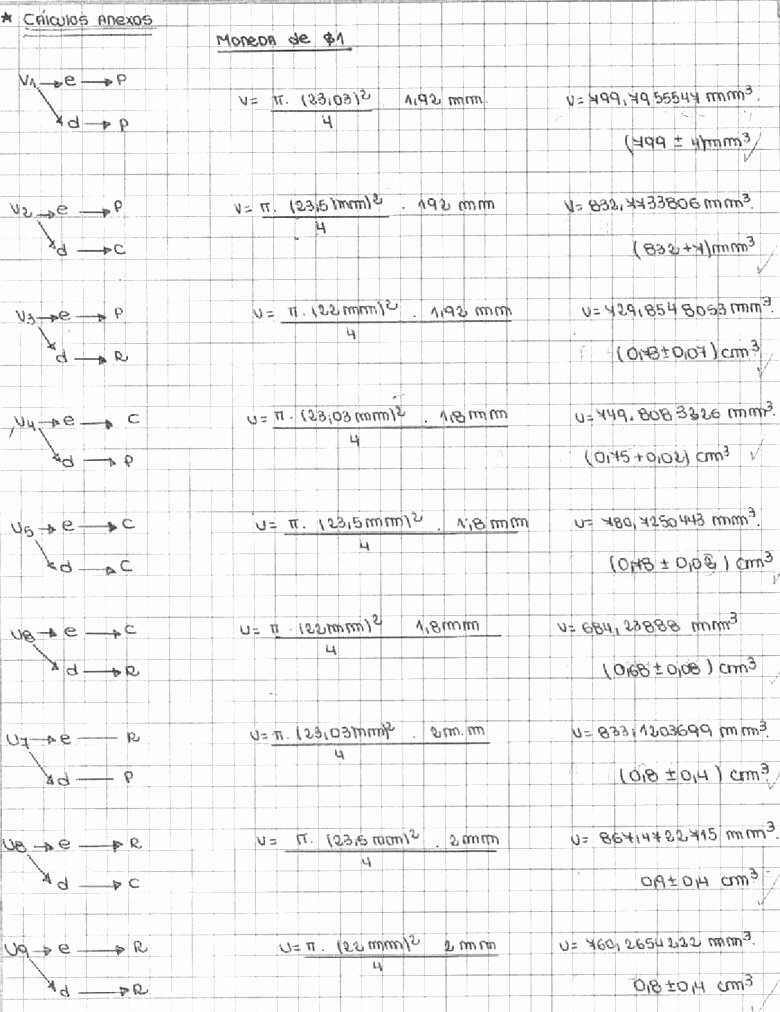 * Cálculos Anexos
Moneda de $1
V1 → e → P
V= π. (23,03)² 1,92 mm
4
V= 799,7955547 mm³.
d → P
(799 ± 4) mm³
V2 → e → P
V= π. (23,5 mm)² . 192 mm
4
V= 832,7733806 mm³.
d → C
(832 + 7) mm³
V3 → e → P
V= π. (22 mm)² . 1,92 mm
4
V= 729,8548053 mm³.
d → R
(0,73 ± 0,07) cm³
V4 → e → C
V= π. (23,03 mm)² . 1,8 mm
4
V= 749.8083326 mm³.
d → P
(0,75 + 0,02) cm³
V5 → e → C
V= π. (23,5 mm)² . 1,8 mm
4
V= 780,7250443 mm³.
d → C
(0,78 ± 0,02) cm³
V6 → e → C
V= π (22 mm)² 1,8 mm
4
V= 684,23888 mm³
d → R
(0,68 ± 0,08) cm³
V7 → e — R
V= π. (23,03 mm)² . 2 m.m
4
V= 833,1203699 mm³.
d — P
(0,8 ± 0,4) cm³
V8 → e → R
V= π. (23,5 mm)² . 2 mm
4
V= 867,4722715 mm³.
d → C
0,9 ± 0,4 cm³
V9 → e → R
V= π. (22 mm)² 2 mm
4
V= 760,2654222 mm³.
d → R
0,8 ± 0,4 cm³